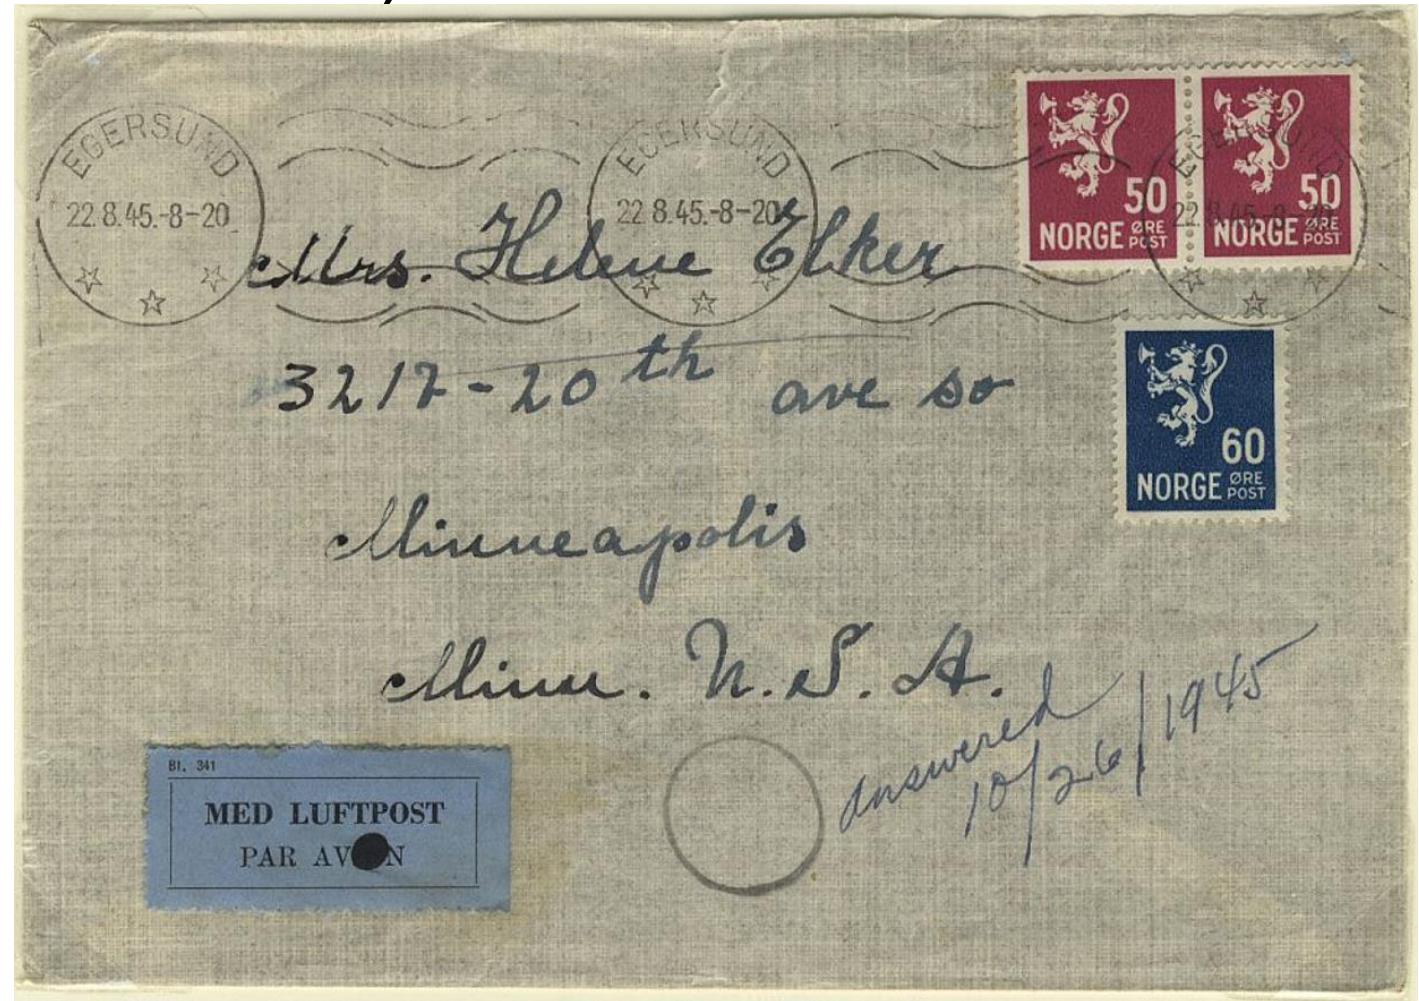 EGERSUND
22.8.45.-8-20
EGERSUND
22.8.45.-8-20
EGERSUND
22.8.45.-8-20
50
NORGE ØRE POST
50
NORGE ØRE POST
Mrs. Helene Elker
60
NORGE ØRE POST
3217-20th ave so
Minneapolis
Minn. U.S.A.
answered
10/26/1945
Bl. 341
MED LUFTPOST
PAR AVION